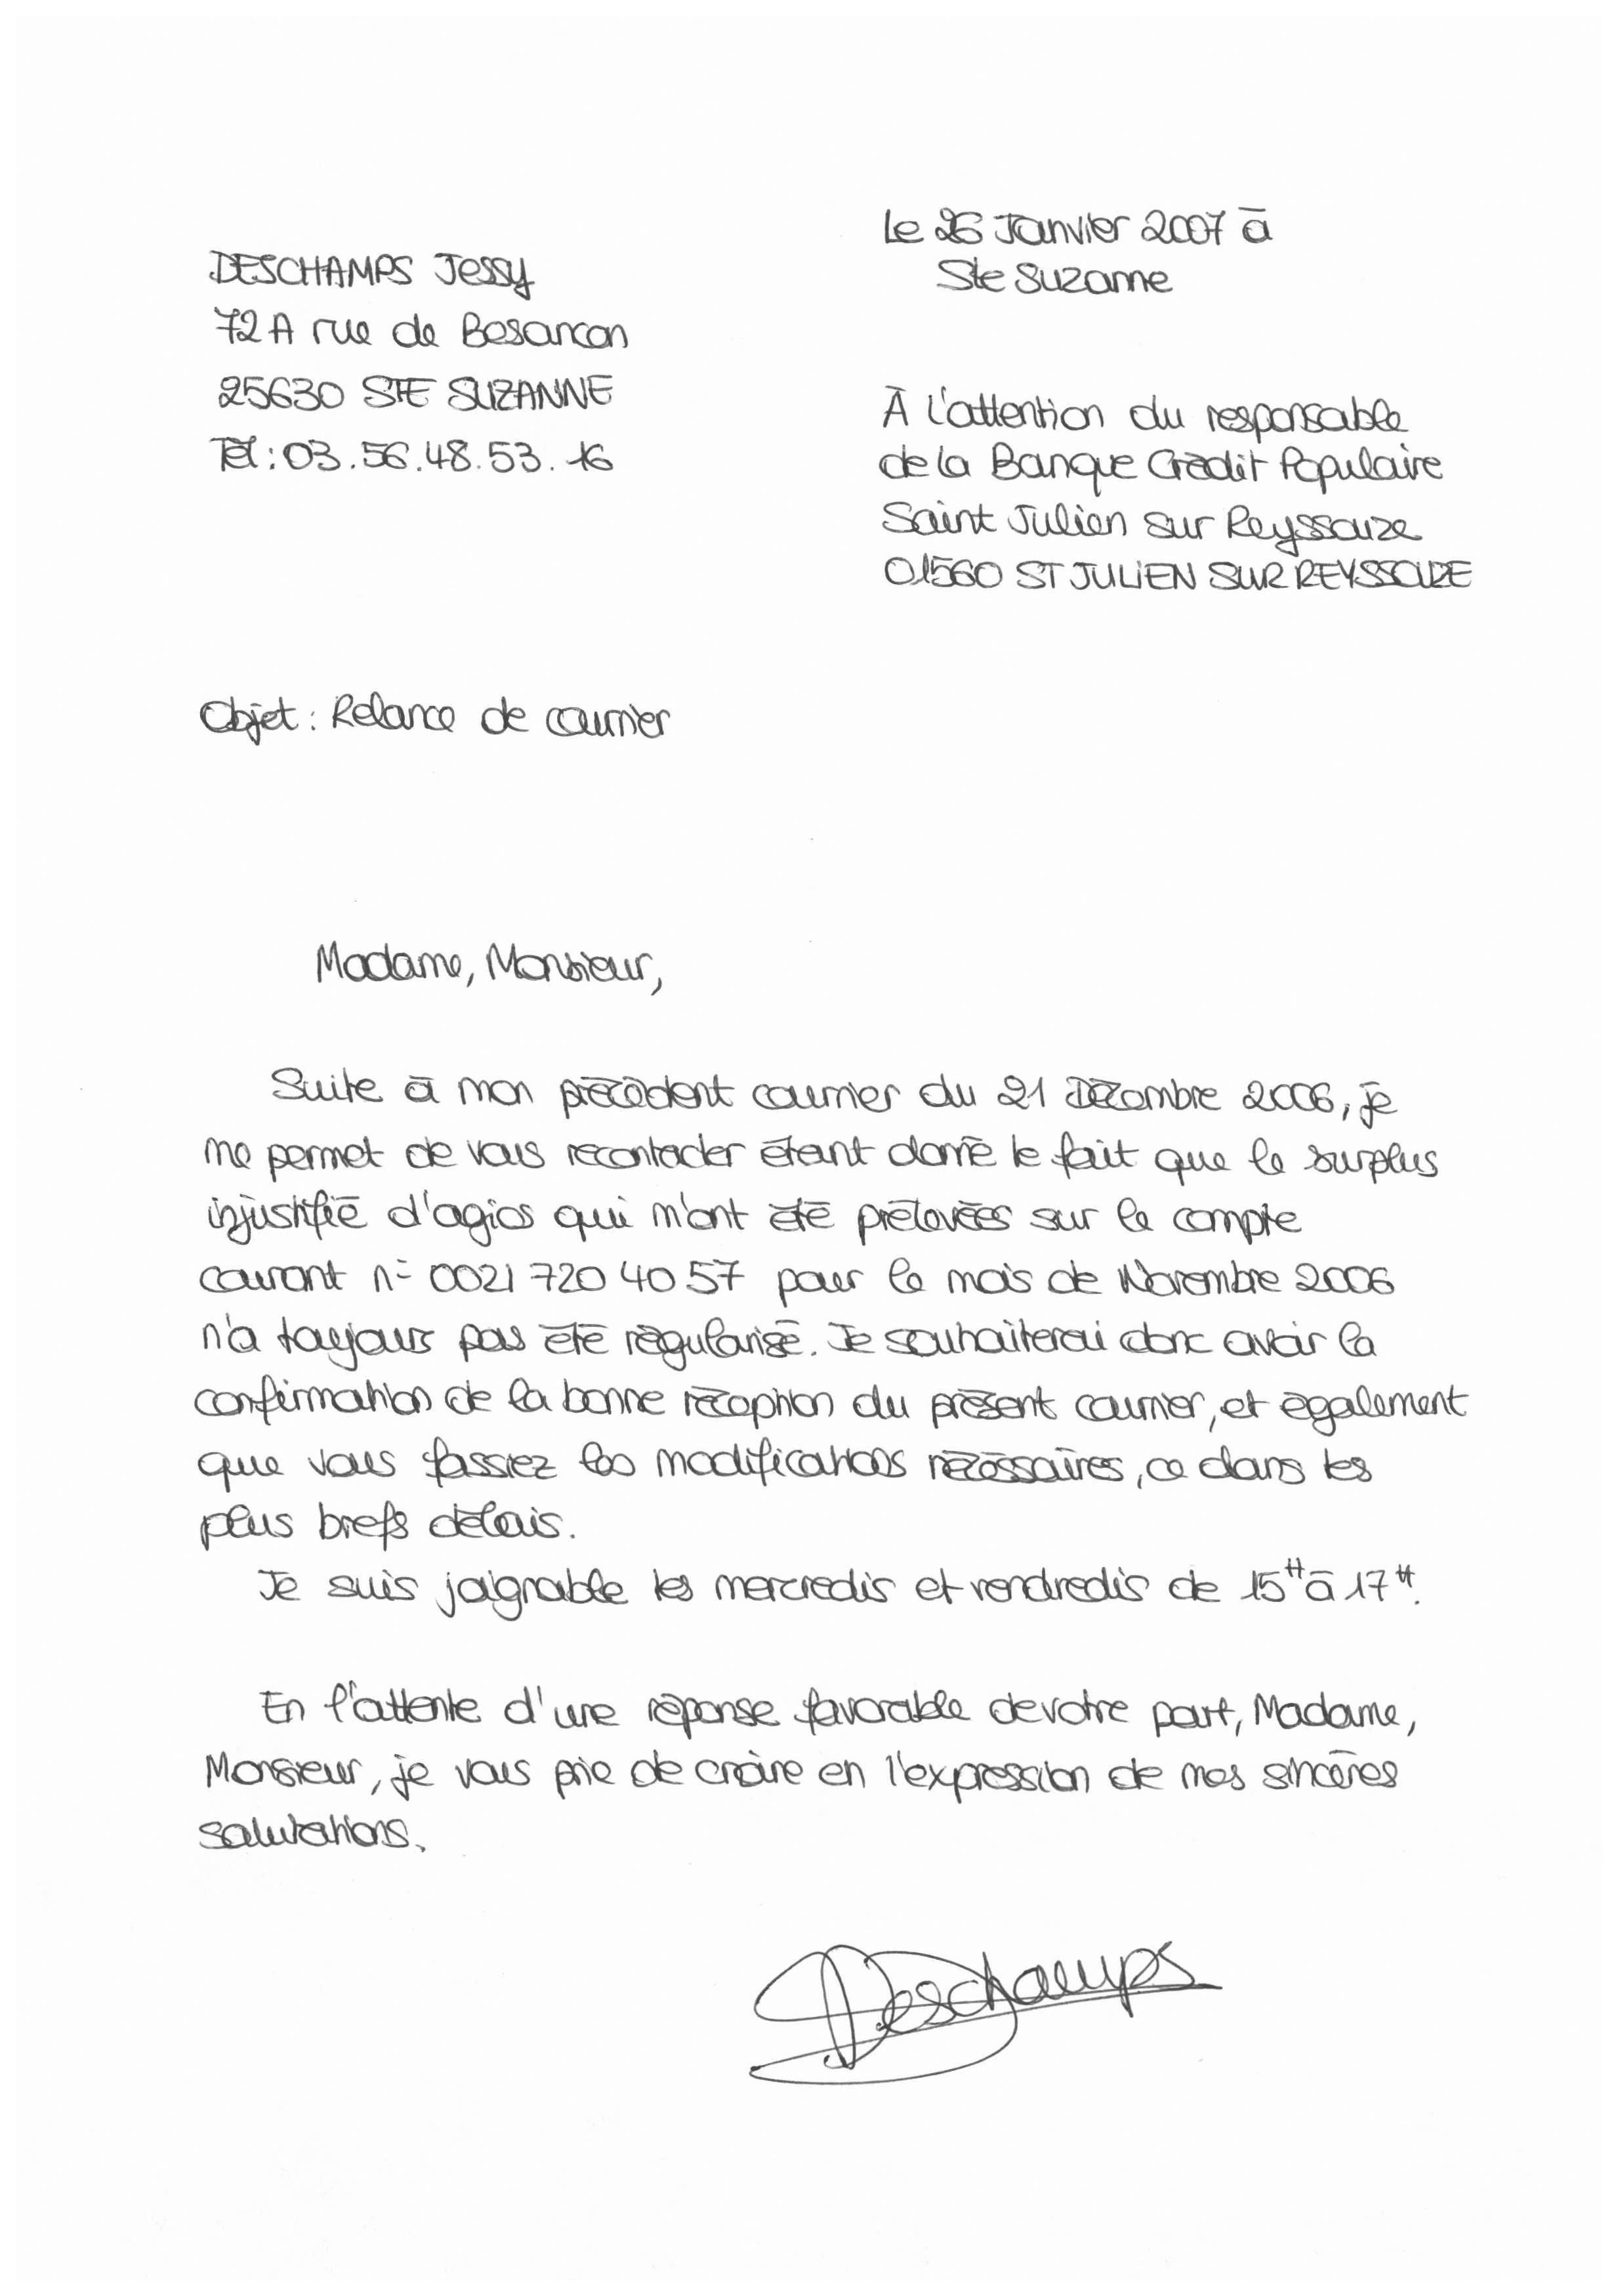 Le 26 Janvier 2007 à
Ste Suzanne
DESCHAMPS Jessy
72 A rue de Besancon
25630 STE SUZANNE
Tél : 03.56.48.53.16
À l'attention du responsable
de la Banque Crédit Populaire
Saint Julien sur Reyssouze
01560 ST JULIEN SUR REYSSOUZE
Objet : Relance de courrier
Madame, Monsieur,
Suite à mon précédent courrier du 21 Décembre 2006, je
me permet de vous recontacter étant donné le fait que le surplus
injustifié d'agios qui m'ont été prélevées sur le compte
courant n° 0021 720 40 57 pour le mois de Novembre 2006
n'a toujours pas été régularisé. Je souhaiterai donc avoir la
confirmation de la bonne réception du présent courrier, et également
que vous fassiez les modifications nécéssaires, ce dans les
plus brefs délais.
Je suis joignable les mercredis et vendredis de 15H à 17H.
En l'attente d'une réponse favorable de votre part, Madame,
Monsieur, je vous prie de croire en l'expression de mes sincères
salutations.
Deschamps